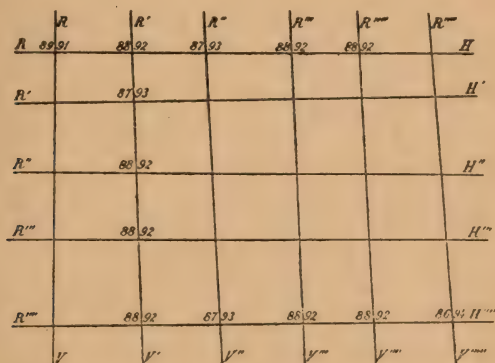 R R' R'' R''' R'''' R'''''
R 89 91 88 92 87 93 88 92 88 92 H
R' 87 93 H'
R'' 88 92 H''
R''' 88 92 H'''
R'''' 88 92 87 93 88 92 88 92 86 94 H''''
V V' V'' V''' V'''' V'''''